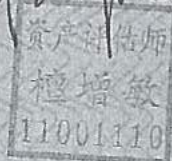 资产评估师
檀增敏
11001110